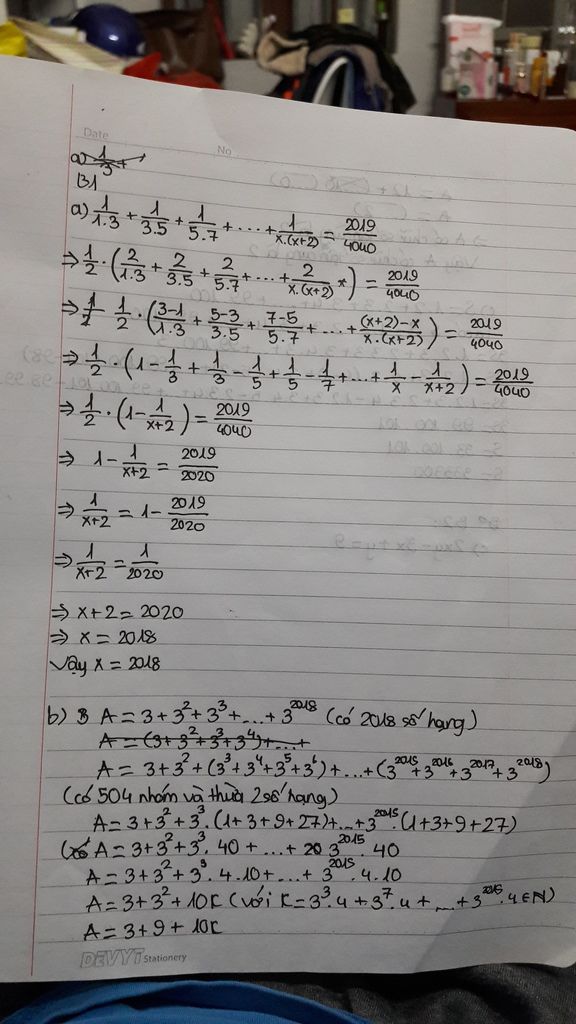 Date
No
a) 1/3 +
B1
a) 1/1.3 + 1/3.5 + 1/5.7 + ... + 1/x.(x+2) = 2019/4040
⇒ 1/2 . (2/1.3 + 2/3.5 + 2/5.7 + ... + 2/x.(x+2)) = 2019/4040
⇒ 1/2 . (3-1/1.3 + 5-3/3.5 + 7-5/5.7 + ... + (x+2)-x/x.(x+2)) = 2019/4040
⇒ 1/2 . (1 - 1/3 + 1/3 - 1/5 + 1/5 - 1/7 + ... + 1/x - 1/x+2) = 2019/4040
⇒ 1/2 . (1 - 1/x+2) = 2019/4040
⇒ 1 - 1/x+2 = 2019/2020
⇒ 1/x+2 = 1 - 2019/2020
⇒ 1/x+2 = 1/2020
⇒ x+2 = 2020
⇒ x = 2018
Vậy x = 2018
b) A = 3 + 3² + 3³ + ... + 3²⁰¹⁸ (có 2018 số hạng)
A = (3 + 3² + 3³ + 3⁴) + ... +
A = 3 + 3² + (3³ + 3⁴ + 3⁵ + 3⁶) + ... + (3²⁰¹⁵ + 3²⁰¹⁶ + 3²⁰¹⁷ + 3²⁰¹⁸)
(có 504 nhóm và thừa 2 số hạng)
A = 3 + 3² + 3³ . (1+3+9+27) + ... + 3²⁰¹⁵ . (1+3+9+27)
A = 3 + 3² + 3³ . 40 + ... + 3²⁰¹⁵ . 40
A = 3 + 3² + 3³ . 4.10 + ... + 3²⁰¹⁵ . 4.10
A = 3 + 3² + 10K (với K = 3³ . 4 + 3⁷ . 4 + ... + 3²⁰¹⁵ . 4 ∈ N)
A = 3 + 9 + 10K
DEVYT Stationery